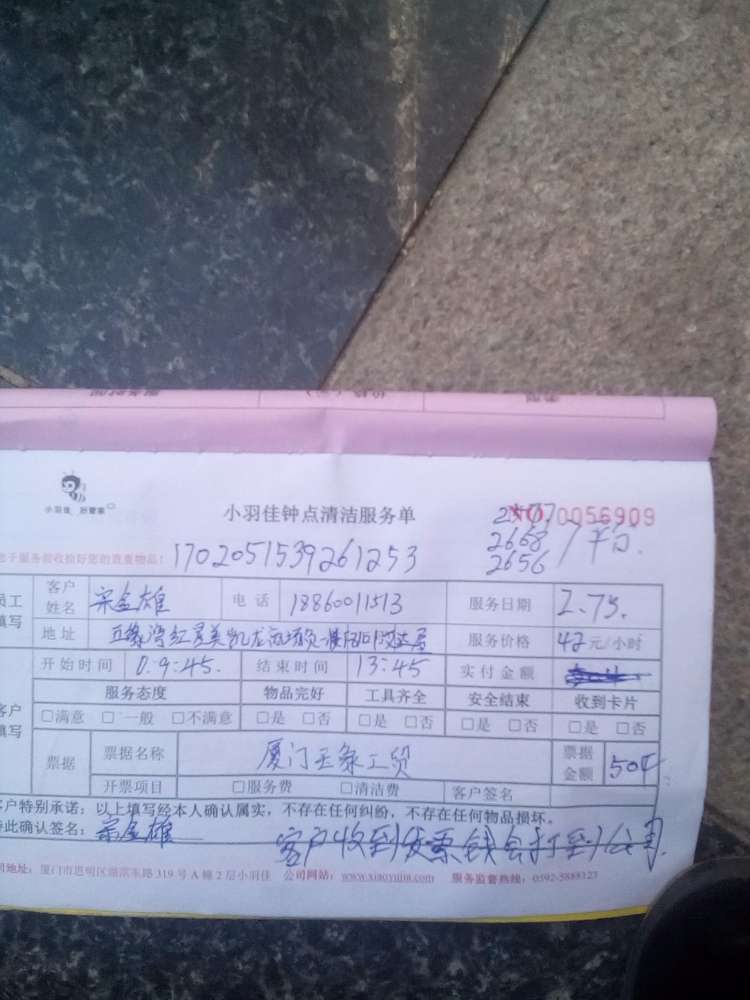 小羽佳 好管家
小羽佳钟点清洁服务单
0056909
2668
2656
平台
服务前收拾好您的贵重物品!
1702051539261253
客户姓名 宋金雄 电话 18860011513 服务日期 2.7号
地址 五缘湾红星美凯龙 服务价格 42元/小时
开始时间 0.9:45. 结束时间 13:45 实付金额
服务态度 物品完好 工具齐全 安全结束 收到卡片
□满意 □一般 □不满意 □是 □否 □是 □否 □是 □否 □是 □否
票据 票据名称 厦门 工贸 票据金额 504
开票项目 □服务费 □清洁费 客户签名
客户特别承诺:以上填写经本人确认属实,不存在任何纠纷,不存在任何物品损坏。
特此确认签名: 宋金雄 客户收到发票钱会打到公司
司地址:厦门市思明区湖滨东路319号A幢2层小羽佳 公司网站: www.xiaoyujia.com 服务监督热线: 0592-5888123